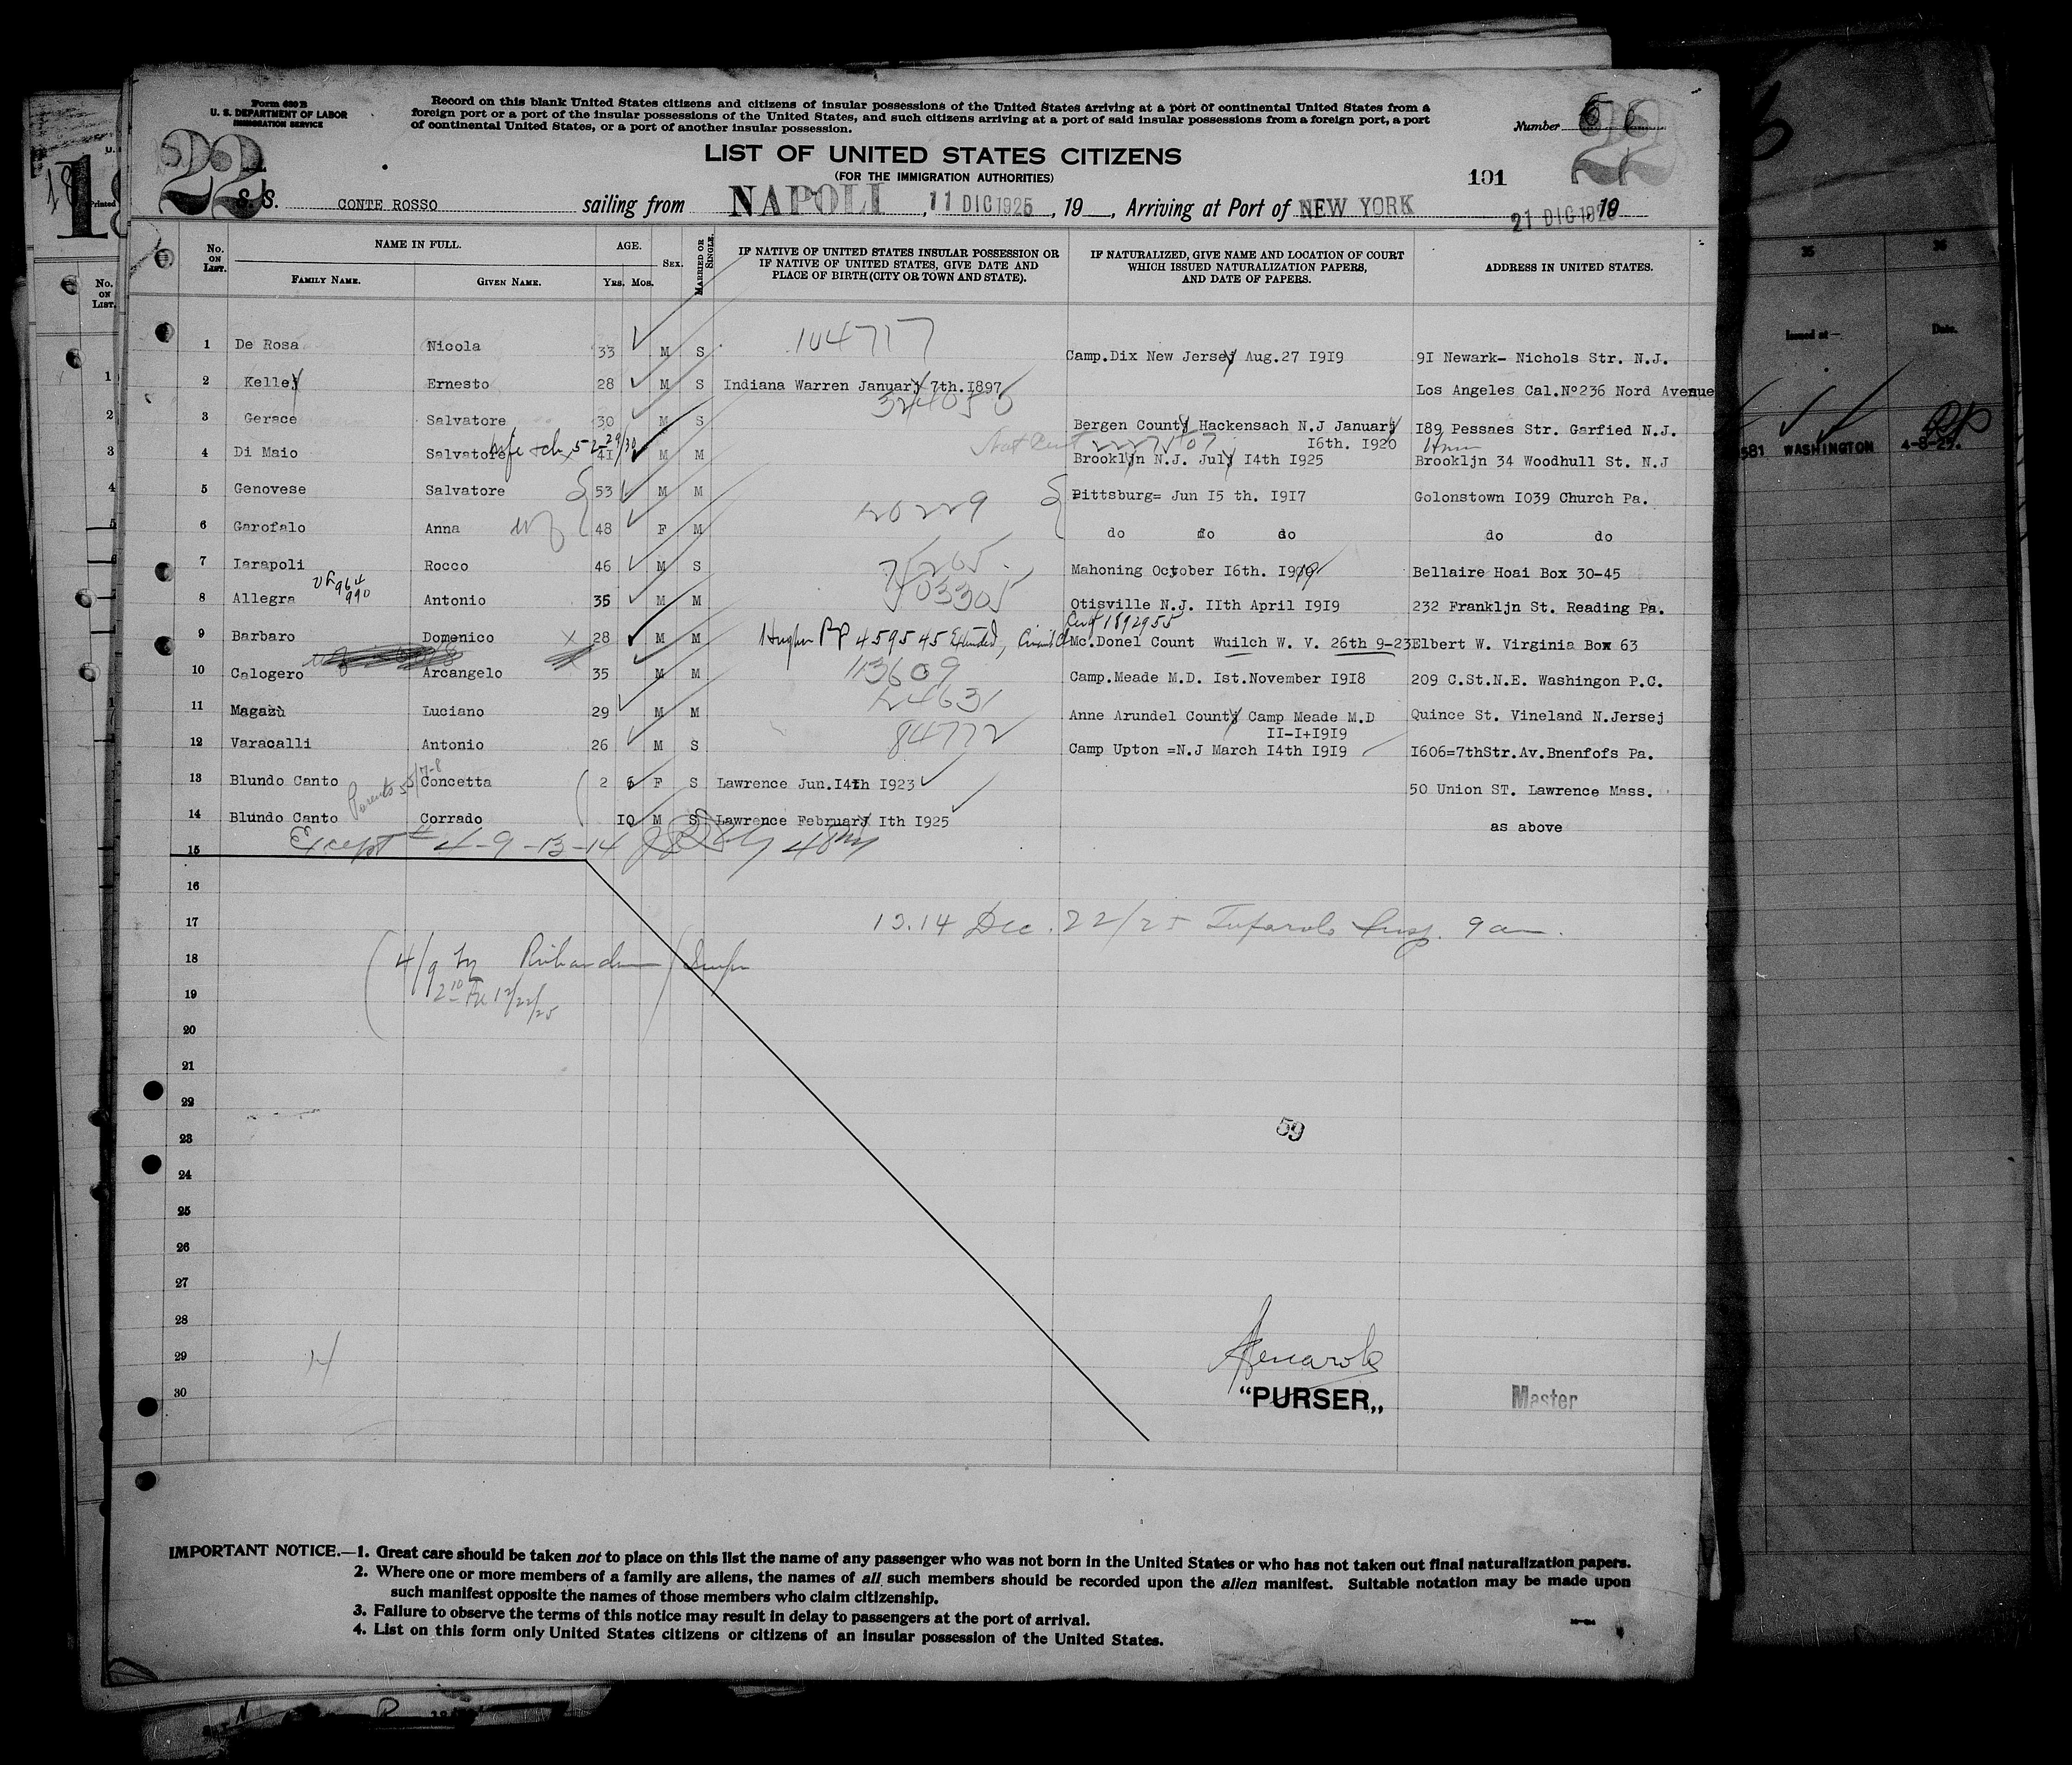 Form 630 B
U. S. DEPARTMENT OF LABOR
IMMIGRATION SERVICE
Record on this blank United States citizens and citizens of insular possessions of the United States arriving at a port of continental United States from a
foreign port or a port of the insular possessions of the United States, and such citizens arriving at a port of said insular possessions from a foreign port, a port
of continental United States, or a port of another insular possession.
Number
22
22
LIST OF UNITED STATES CITIZENS
(FOR THE IMMIGRATION AUTHORITIES)
191
S. S. CONTE ROSSO sailing from NAPOLI, 11 DIC 1925, 19__, Arriving at Port of NEW YORK 21 DIC 1925 19
No. ON LIST. NAME IN FULL. AGE. SEX. MARRIED OR SINGLE. IF NATIVE OF UNITED STATES INSULAR POSSESSION OR IF NATIVE OF UNITED STATES, GIVE DATE AND PLACE OF BIRTH (CITY OR TOWN AND STATE). IF NATURALIZED, GIVE NAME AND LOCATION OF COURT WHICH ISSUED NATURALIZATION PAPERS, AND DATE OF PAPERS. ADDRESS IN UNITED STATES.
FAMILY NAME. GIVEN NAME. YRS. MOS.
1 De Rosa Nicola 33 M S 104717 Camp.Dix New Jersey Aug.27 I9I9 9I Newark- Nichols Str. N.J.
2 Kelley Ernesto 28 M S Indiana Warren January 7th.I897 Los Angeles Cal.Nº236 Nord Avenue
3 Gerace Salvatore 30 M S Bergen County Hackensach N.J January I6th. I920 I89 Pessaes Str. Garfied N.J.
4 Di Maio Salvatore 41 M M Brooklyn N.J. July I4th I925 Brookljn 34 Woodhull St. N.J
5 Genovese Salvatore 53 M M Pittsburg= Jun I5 th. I9I7 Golonstown I039 Church Pa.
6 Garofalo Anna 48 F M 20229 do do do do do
7 Iarapoli Rocco 46 M S 75265 Mahoning October I6th. I919 Bellaire Hoai Box 30-45
8 Allegra Antonio 35 M M Otisville N.J. IIth April I9I9 232 Frankljn St. Reading Pa.
Cert 1892955
9 Barbaro Domenico X 28 M M PP 459545 Extended, Mc.Donel Count Wuilch W. V. 26th 9-23 Elbert W. Virginia Box 63
10 Calogero Arcangelo 35 M M 113609 Camp.Meade M.D. Ist.November I9I8 209 C.St.N.E. Washingon P.C.
11 Magazù Luciano 29 M M 24631 Anne Arundel County Camp Meade M.D II-I+I9I9 Quince St. Vineland N.Jersej
12 Varacalli Antonio 26 M S 84772 Camp Upton =N.J March I4th I9I9 I606=7thStr.Av.Bnenfofs Pa.
13 Blundo Canto Concetta 2 6 F S Lawrence Jun.I4th I923 50 Union ST. Lawrence Mass.
14 Blundo Canto Corrado IO M S Lawrence February Ith I925 as above
15 Except # 4-9-13-14
16
17 13.14 Dec. 22/25 Insp. 9 am.
18
19
20
21
22
23 59
24
25
26
27
28
29
30
14
"PURSER„
Master
IMPORTANT NOTICE.—1. Great care should be taken not to place on this list the name of any passenger who was not born in the United States or who has not taken out final naturalization papers.
2. Where one or more members of a family are aliens, the names of all such members should be recorded upon the alien manifest. Suitable notation may be made upon
such manifest opposite the names of those members who claim citizenship.
3. Failure to observe the terms of this notice may result in delay to passengers at the port of arrival.
4. List on this form only United States citizens or citizens of an insular possession of the United States.
35 36
Issued at— Date.
581 WASHINGTON 4-8-25.